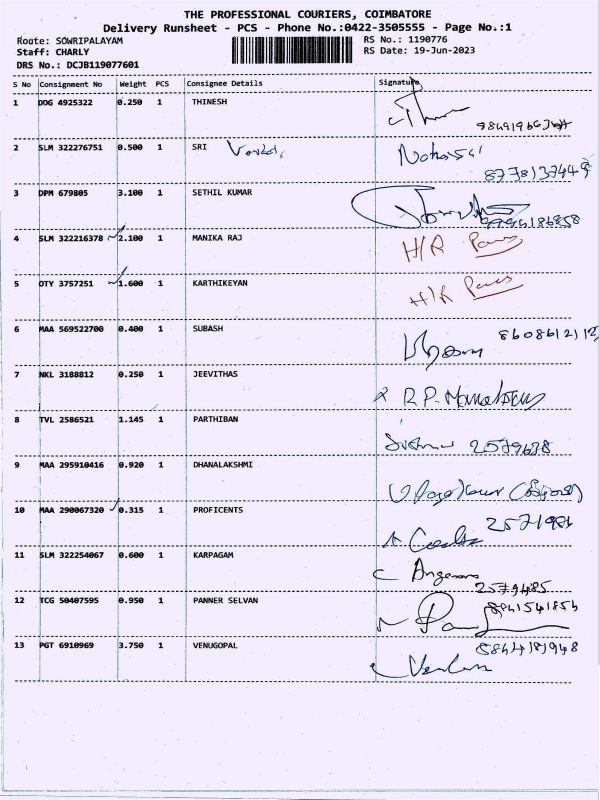 THE PROFESSIONAL COURIERS, COIMBATORE
Delivery Runsheet - PCS - Phone No.:0422-3505555 - Page No.:1
Route: SOWRIPALAYAM RS No.: 1190776
Staff: CHARLY RS Date: 19-Jun-2023
DRS No.: DCJB119077601
S No Consignment No Weight PCS Consignee Details Signature
1 DDG 4925322 0.250 1 THINESH
2 SLM 322276751 0.500 1 SRI
3 DPM 679805 3.100 1 SETHIL KUMAR
4 SLM 322216378 2.100 1 MANIKA RAJ H/R
5 OTY 3757251 1.600 1 KARTHIKEYAN H/R
6 MAA 569522700 0.400 1 SUBASH
7 NKL 3188812 0.250 1 JEEVITHAS R.P.
8 TVL 2586521 1.145 1 PARTHIBAN 2579638
9 MAA 295910416 0.920 1 DHANALAKSHMI
10 MAA 290067320 0.315 1 PROFICENTS
11 SLM 322254067 0.600 1 KARPAGAM 2579485
12 TCG 50407595 0.950 1 PANNER SELVAN 8841541854
13 PGT 6910969 3.750 1 VENUGOPAL